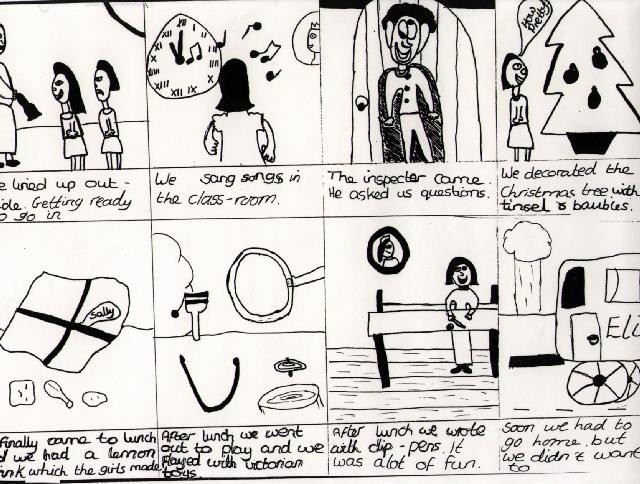 How Pretty
e lined up out-
ide. Getting ready
o go in
We sang songs in
the class-room.
The inspecter came.
He asked us questions.
We decorated the
Christmas tree with
tinsel & baubles.
Sally
Eli
Finally came to lunch
d we had a lemon
rink which the girls made
After lunch we went
out to play and we
played with victorian
toys.
After lunch we wrote
with dip-pens. It
was a lot of fun.
Soon we had to
go home. but
we didn't want
to